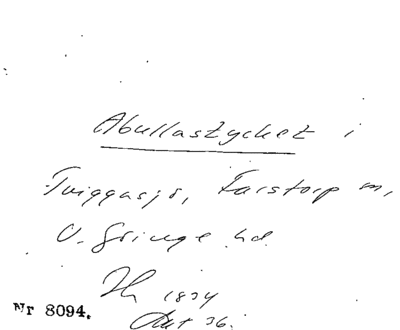 Abullastycket i
Tviggasjö, Farstorp sn,
V. Göinge hd.
1834
Akt 36.
Nr 8094.